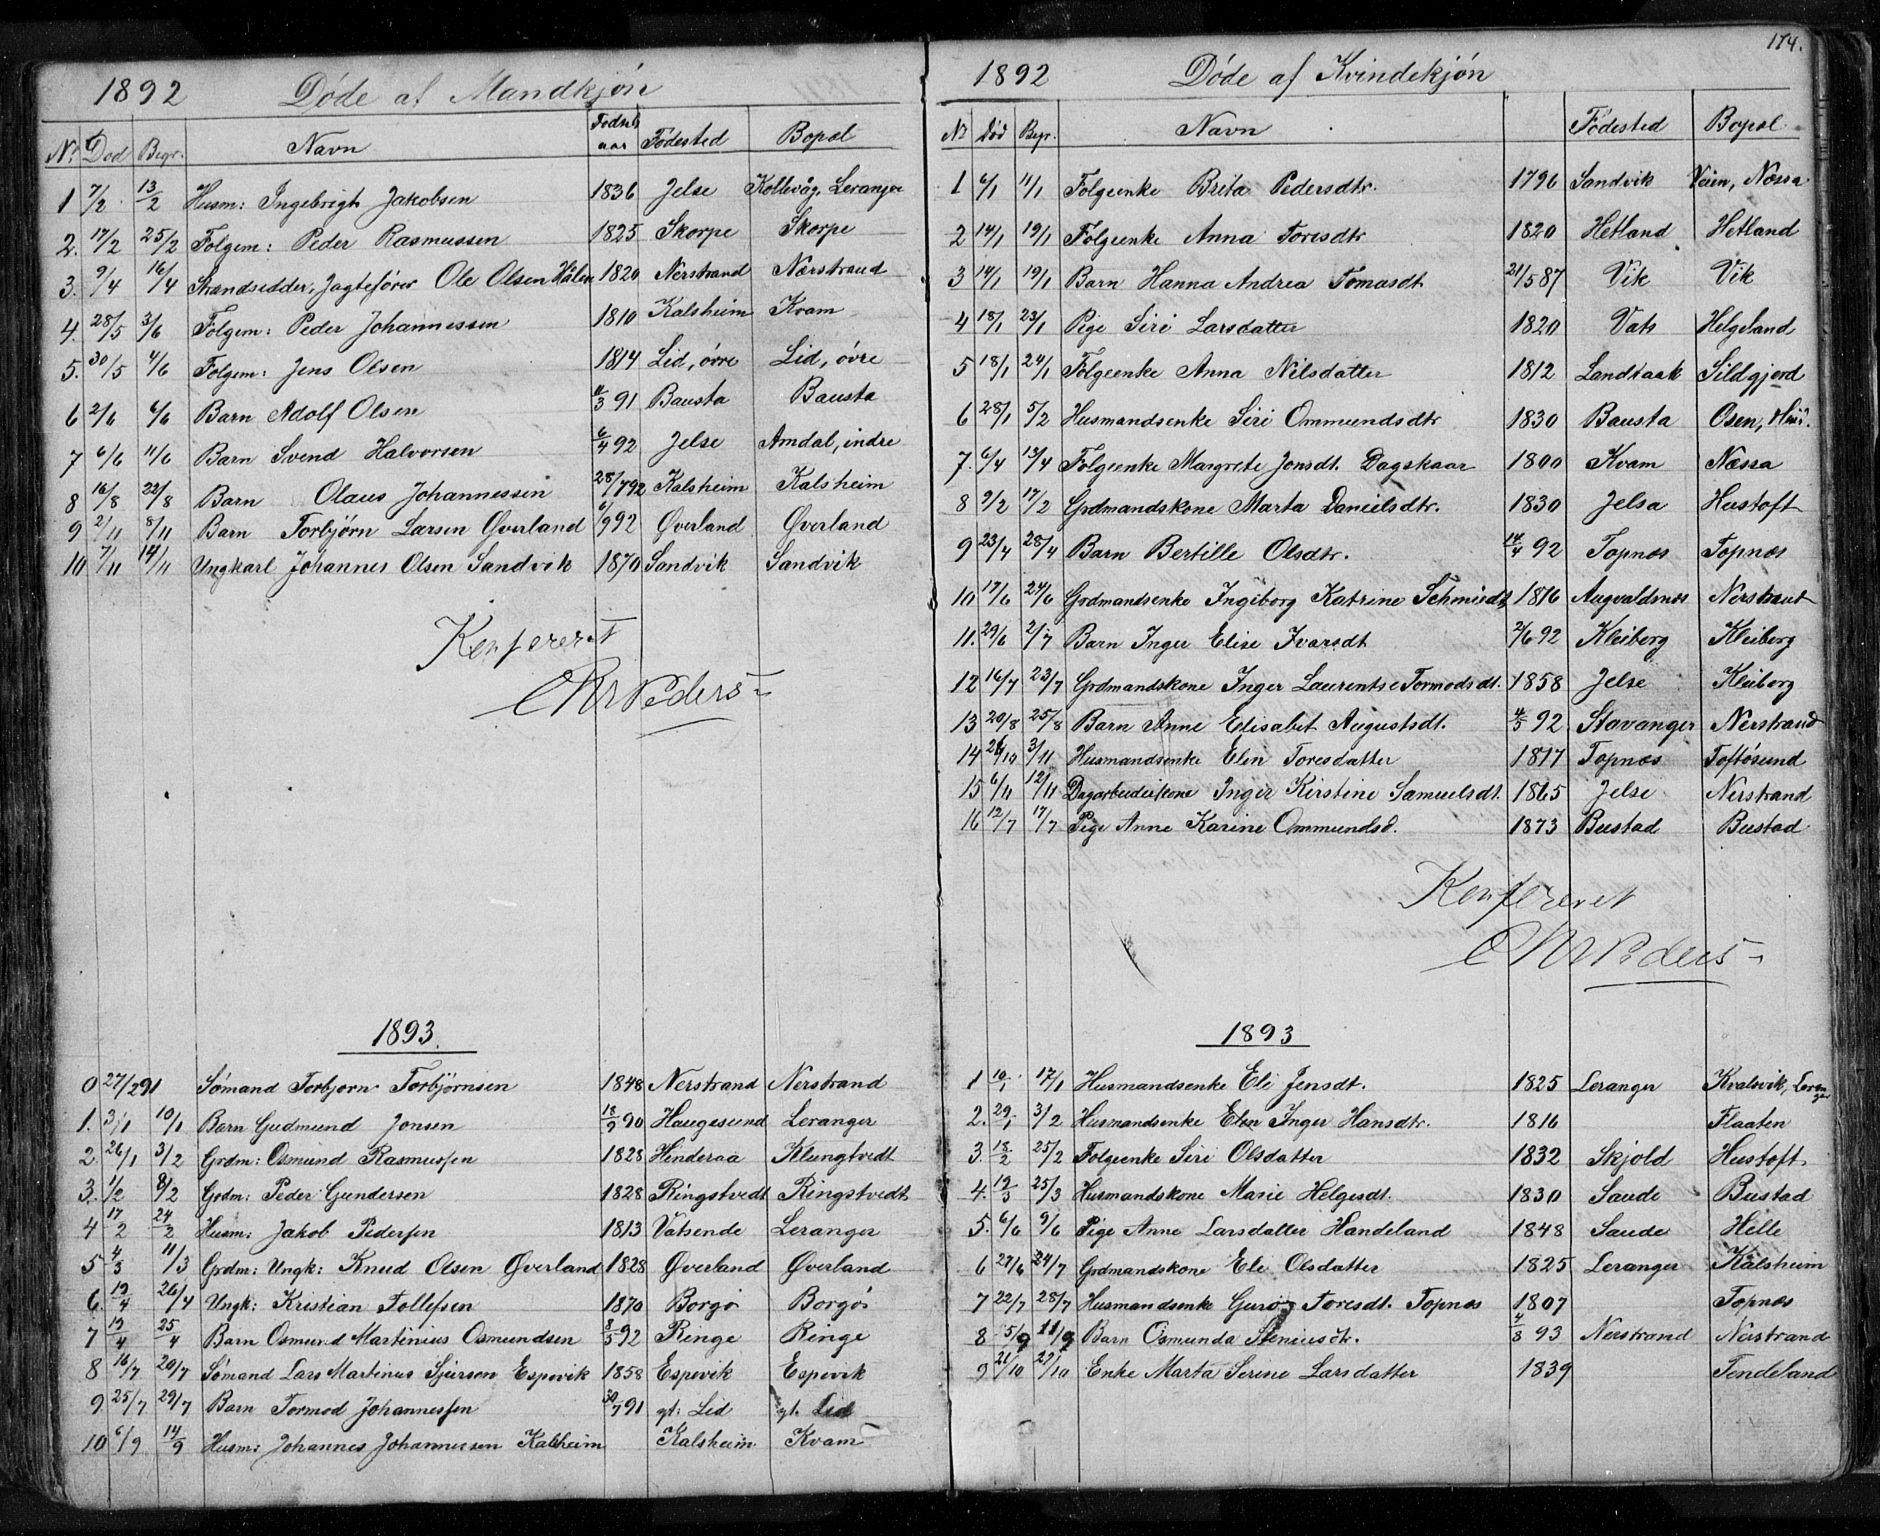 1892 Døde af Mandkjøn
No Død Begr. Navn Fødsels aar Fødested Bopæl
1 7/2 13/2 Husm: Ingebrigt Jakobsen 1836 Jelse Kollevåg, Leranger
2. 17/2 25/2 Folgem: Peder Rasmussen 1825 Skorpe Skorpe
3. 9/4 16/4 Strandsedder, Jagtefører Ole Olsen Hålen 1820 Nerstrand Nærstrand
4. 28/5 3/6 Folgem: Peder Johannessen 1810 Kalsheim Kvam
5. 30/5 4/6 Folgem: Jens Olsen 1814 Lid, øvre Lid, øvre
6 2/6 6/6 Barn Adolf Olsen 11/3 91 Bausta Bausta
7 6/6 11/6 Barn Svend Halvorsen 6/4 92 Jelse Amdal, indre
8 16/8 22/8 Barn Olaus Johannessen 28/7 92 Kalsheim Kalsheim
9 2/11 8/11 Barn Torbjørn Larsen Øverland 6/9 92 Øverland Øverland
10 7/11 14/11 Ungkarl Johannes Olsen Sandvik 1870 Sandvik Sandvik
Konfereret
Chr Peders
1893.
0 27/2 91 Sømand Torbjørn Torbjørnsen 1848 Nerstrand Nerstrand
1. 3/1 10/1 Barn Gudmund Jonsen 18/9 90 Haugesund Leranger
2. 26/1 3/2 Grdm: Osmund Rasmussen 1828 Hinderaa Klungtvedt
3. 1/2 8/2 Grdm: Peder Gundersen 1828 Ringstvedt Ringstvedt
4 17/2 24/2 Husm: Jakob Pedersen 1813 Vatsende Leranger
5 4/3 11/3 Grdm: Ungk: Knud Olsen Øverland 1828 Øverland Øverland
6. 19/4 26/4 Ungk: Kristian Tollefsen 1870 Borgø Borgø
7 19/4 25/4 Barn Osmund Martinius Osmundsen 8/5 92 Ringe Ringe
8 16/7 20/7 Sømand Lars Martinus Sjursen Espevik 1858 Espevik Espevik
9 25/7 29/7 Barn Tormod Johannessen 30/7 91 yt: Lid yt. Lid
10 6/9 14/9 Husm: Johannes Johannessen Kalsheim Kalsheim Kvam
174.
1892 Døde af Kvindekjøn
No Død Begr. Navn Fødested Bopæl
1 6/1 11/1 Folgeenke Brita Pedersdtr. 1796 Sandvik Veien, Næssa
2 14/1 19/1 Folgeenke Anna Toresdtr 1820 Hetland Hetland
3 14/1 19/1 Barn Hanna Andrea Tomasdt 21/5 87 Vik Vik
4 18/1 23/1 Pige Siri Larsdatter 1820 Vats Helgeland
5 18/1 24/1 Folgeenke Anna Nilsdatter 1812 Landraak Sildgjerd
6 28/1 5/2 Husmandsenke Siri Ommundsdtr 1830 Bausta Osen,
7. 6/4 13/4 Folgeenke Margrete Jonsdt. Dagskaar 1800 Kvam Næssa
8 9/2 17/2 Grdmandskone Marta Danielsdtr. 1830 Jelsa Hustoft
9 23/4 28/4 Barn Bertille Olsdtr. 14/4 92 Topnæs Topnæs
10 17/6 24/6 Grdmandsenke Ingeborg Katrine Schmiedt 1816 Augvaldsnæs Nerstrand
11. 29/6 2/7 Barn Inger Elise Ivarsdt 2/6 92 Kleiberg Kleiberg
12 16/7 23/7 Grdmandskone Inger Laurentse Tormodsdt. 1858 Jelse Kleiberg
13 20/8 25/8 Barn Anne Elisabet Augustsdt. 4/5 92 Stavanger Nerstrand
14 26/10 3/11 Husmandsenke Elen Toresdatter 1817 Topnæs Toftøsund
15 6/11 12/11 Dagarbeiderkone Inger Kirstine Samuelsdt. 1865 Jelse Nerstrand
16 12/7 17/7 Pige Anne Karine Ommundsd. 1873 Bustad Bustad
Konfereret
Chr Peders
1893
1 10/1 17/1 Husmandsenke Eli Jensdt. 1825 Leranger Kvalsvik, Leranger
2. 29/1 3/2 Husmandsenke Elen Inger Hansdtr. 1816 Flaaten
3. 18/2 25/2 Folgeenke Siri Olsdatter 1832 Skjold Hustoft
4. 19/3 25/3 Husmandskone Marie Helgesdt. 1830 Saude Bustad
5. 6/6 9/6 Pige Anne Larsdatter Handeland 1848 Saude Helle
6 27/6 24/7 Grdmandskone Eli Olsdatter 1825 Leranger Kalsheim
7 22/7 28/7 Husmandsenke Guro Toresdt. Topnæs 1807 Topnæs
8 5/9 11/9 Barn Osmunda Steniusdtr. 4/8 93 Nerstrand Nerstrand
9 21/10 27/10 Enke Marta Serine Larsdatter 1839 Tendeland